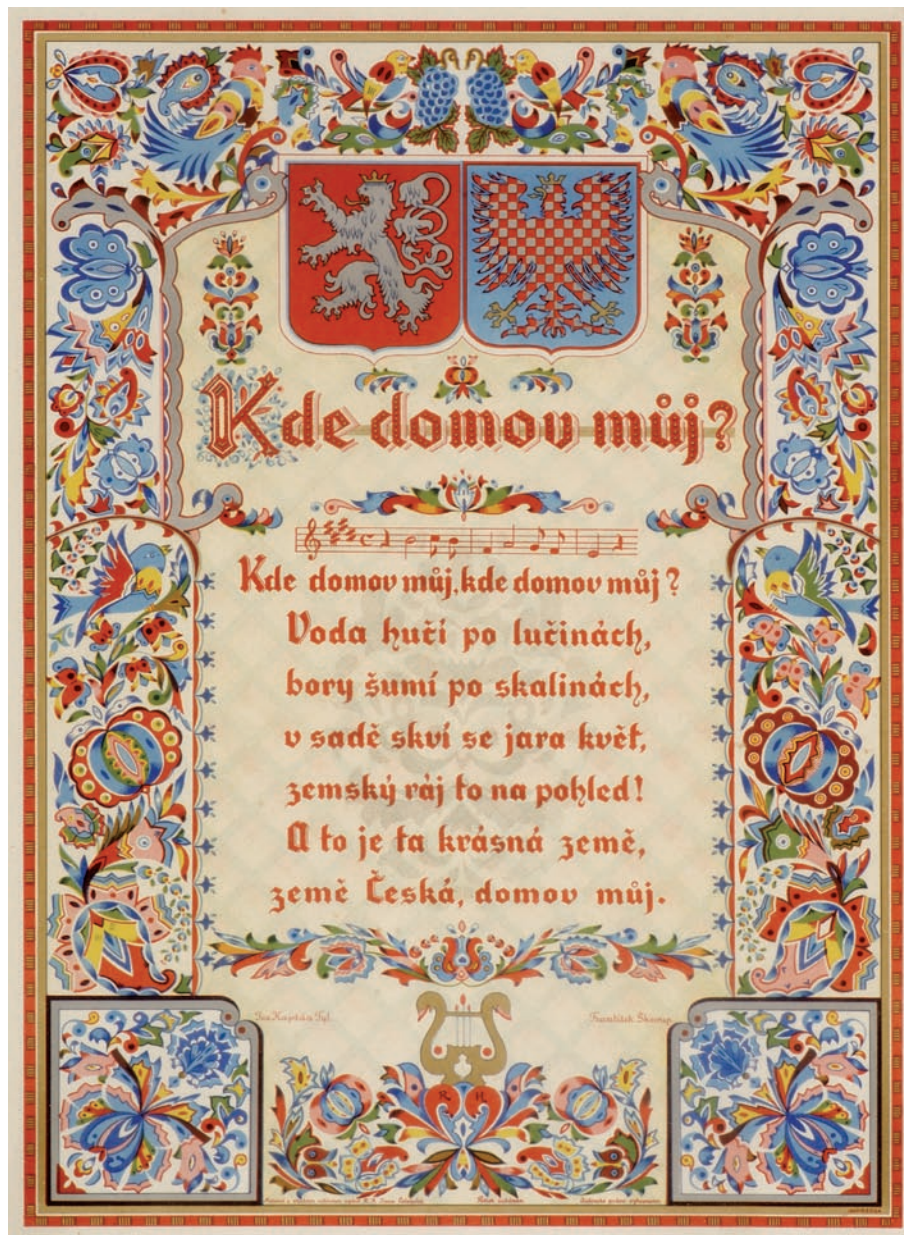 Kde domov můj?
Kde domov můj, kde domov můj?
Voda hučí po lučinách,
bory šumí po skalinách,
v sadě skví se jara květ,
zemský ráj to na pohled!
A to je ta krásná země,
země Česká, domov můj.
Jos. Kajetán Tyl.
František Škroup.
R. H.